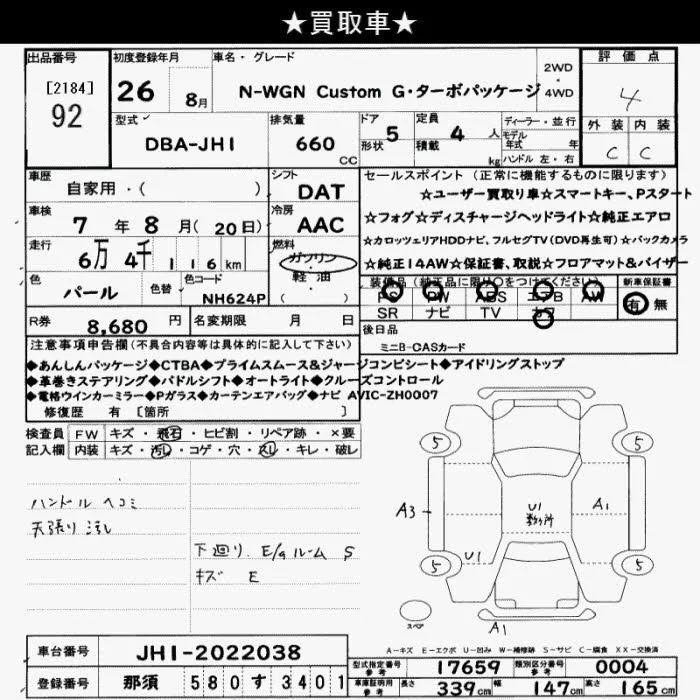 ★買取車★
出品番号
[2184]
92
初度登録年月
26
8月
車名・グレード
N-WGN Custom G・ターボパッケージ
2WD
・
4WD
評価点
4
外装 内装
C C
型式
DBA-JH1
排気量
660
CC
ドア
形状
5
定員
積載
4
人
kg
ディーラー・並行
モデル
年式 年
ハンドル 左・右
車歴
自家用・( )
シフト
DAT
セールスポイント (正常に機能するものに限ります)
☆ユーザー買取り車☆スマートキー、Pスタート
☆フォグ☆ディスチャージヘッドライト☆純正エアロ
☆カロッツェリアHDDナビ、フルセグTV(DVD再生可)☆バックカメラ
☆純正14AW☆保証書、取説☆フロアマット&バイザー
車検
7 年 8 月 (20日)
冷房
AAC
走行
6万 4千 1 1 6 km
燃料
ガソリン
・
軽・油
( )
色
パール
色替
色コード
NH624P
装備品 (純正品に限り○をつけてください)
PS PW ABS エアB AW
SR ナビ TV カワ
新車保証書
有 無
R券
8,680 円
名変期限 月 日
後日品
ミニB-CASカード
注意事項申告欄(不具合内容等は具体的に記入して下さい)
◆あんしんパッケージ◆CTBA◆プライムスムース&ジャージコンビシート◆アイドリングストップ
◆革巻きステアリング◆パドルシフト◆オートライト◆クルーズコントロール
◆電格ウインカーミラー◆Pガラス◆カーテンエアバッグ◆ナビ AVIC-ZH0007
修復歴 有 [箇所 ]
検査員
記入欄
FW キズ・飛石・ヒビ割・リペア跡・×要
内装 キズ・汚れ・コゲ・穴・スレ・キレ・破レ
ハンドル ヘコミ
天張り 汚し
下廻り、E/gルーム S
キズ E
5 5
A3
U1
数ヶ所
A1
U1
5 5
スペア
A1
A-キズ E-エクボ U-凹み W-補修跡 S-サビ C-腐食 XX-交換済
車台番号
JH1-2022038
登録番号
那須 580 す 3401
型式指定番号
参考
17659
類別区分番号
参考
0004
車庫証明用
参考
長さ
339cm
幅
147cm
高さ
165cm